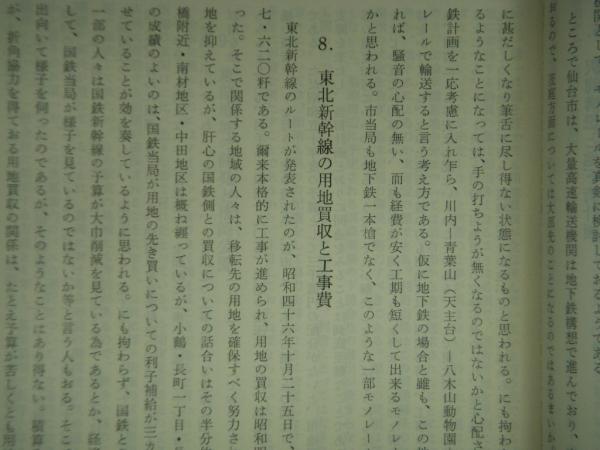 ところで仙台市は、大量高速輸送機関は地下鉄構想で進んでおり、
に甚だしくなり筆舌に尽し得ない状態になるものと思われる。にも拘わ
るようなことになっては、手の打ちようが無くなるのではないかと心配さ
鉄計画を一応考慮に入れ乍ら、川内―青葉山（天主台）―八木山動物園
レールで輸送すると言う考え方である。仮に地下鉄の場合と雖も、この地
れば、騒音の心配の無い、而も経費が安く工期も短くして出来るモノレ
かと思われる。市当局も地下鉄一本槍でなく、このような一部モノレー
8. 東北新幹線の用地買収と工事費
東北新幹線のルートが発表されたのが、昭和四十六年十月二十五日で、
七・六二〇粁である。爾来本格的に工事が進められ、用地の買収は昭和四
った。そこで関係する地域の人々は、移転先の用地を確保すべく努力され
地を抑えているが、肝心の国鉄側との買収についての話合いはその半分
橋附近・南材地区・中田地区は概ね纒っているが、小鶴・長町一丁目・
の成績のよいのは、国鉄当局が用地の先き買いについての利子補給が三カ
せていることが効を奏しているように思われる。にも拘わらず、国鉄と
一部の人々は国鉄新幹線の予算が大巾削減を見ている為であるとか、経
して、国鉄当局が様子を見ているのではないか等と言う人もおる。そこ
出向いて様子を伺ったのであるが、そのようなことはあり得ない。積算
が、折角協力を得ておる用地買収の関係は、たとえ予算が苦しくとも用